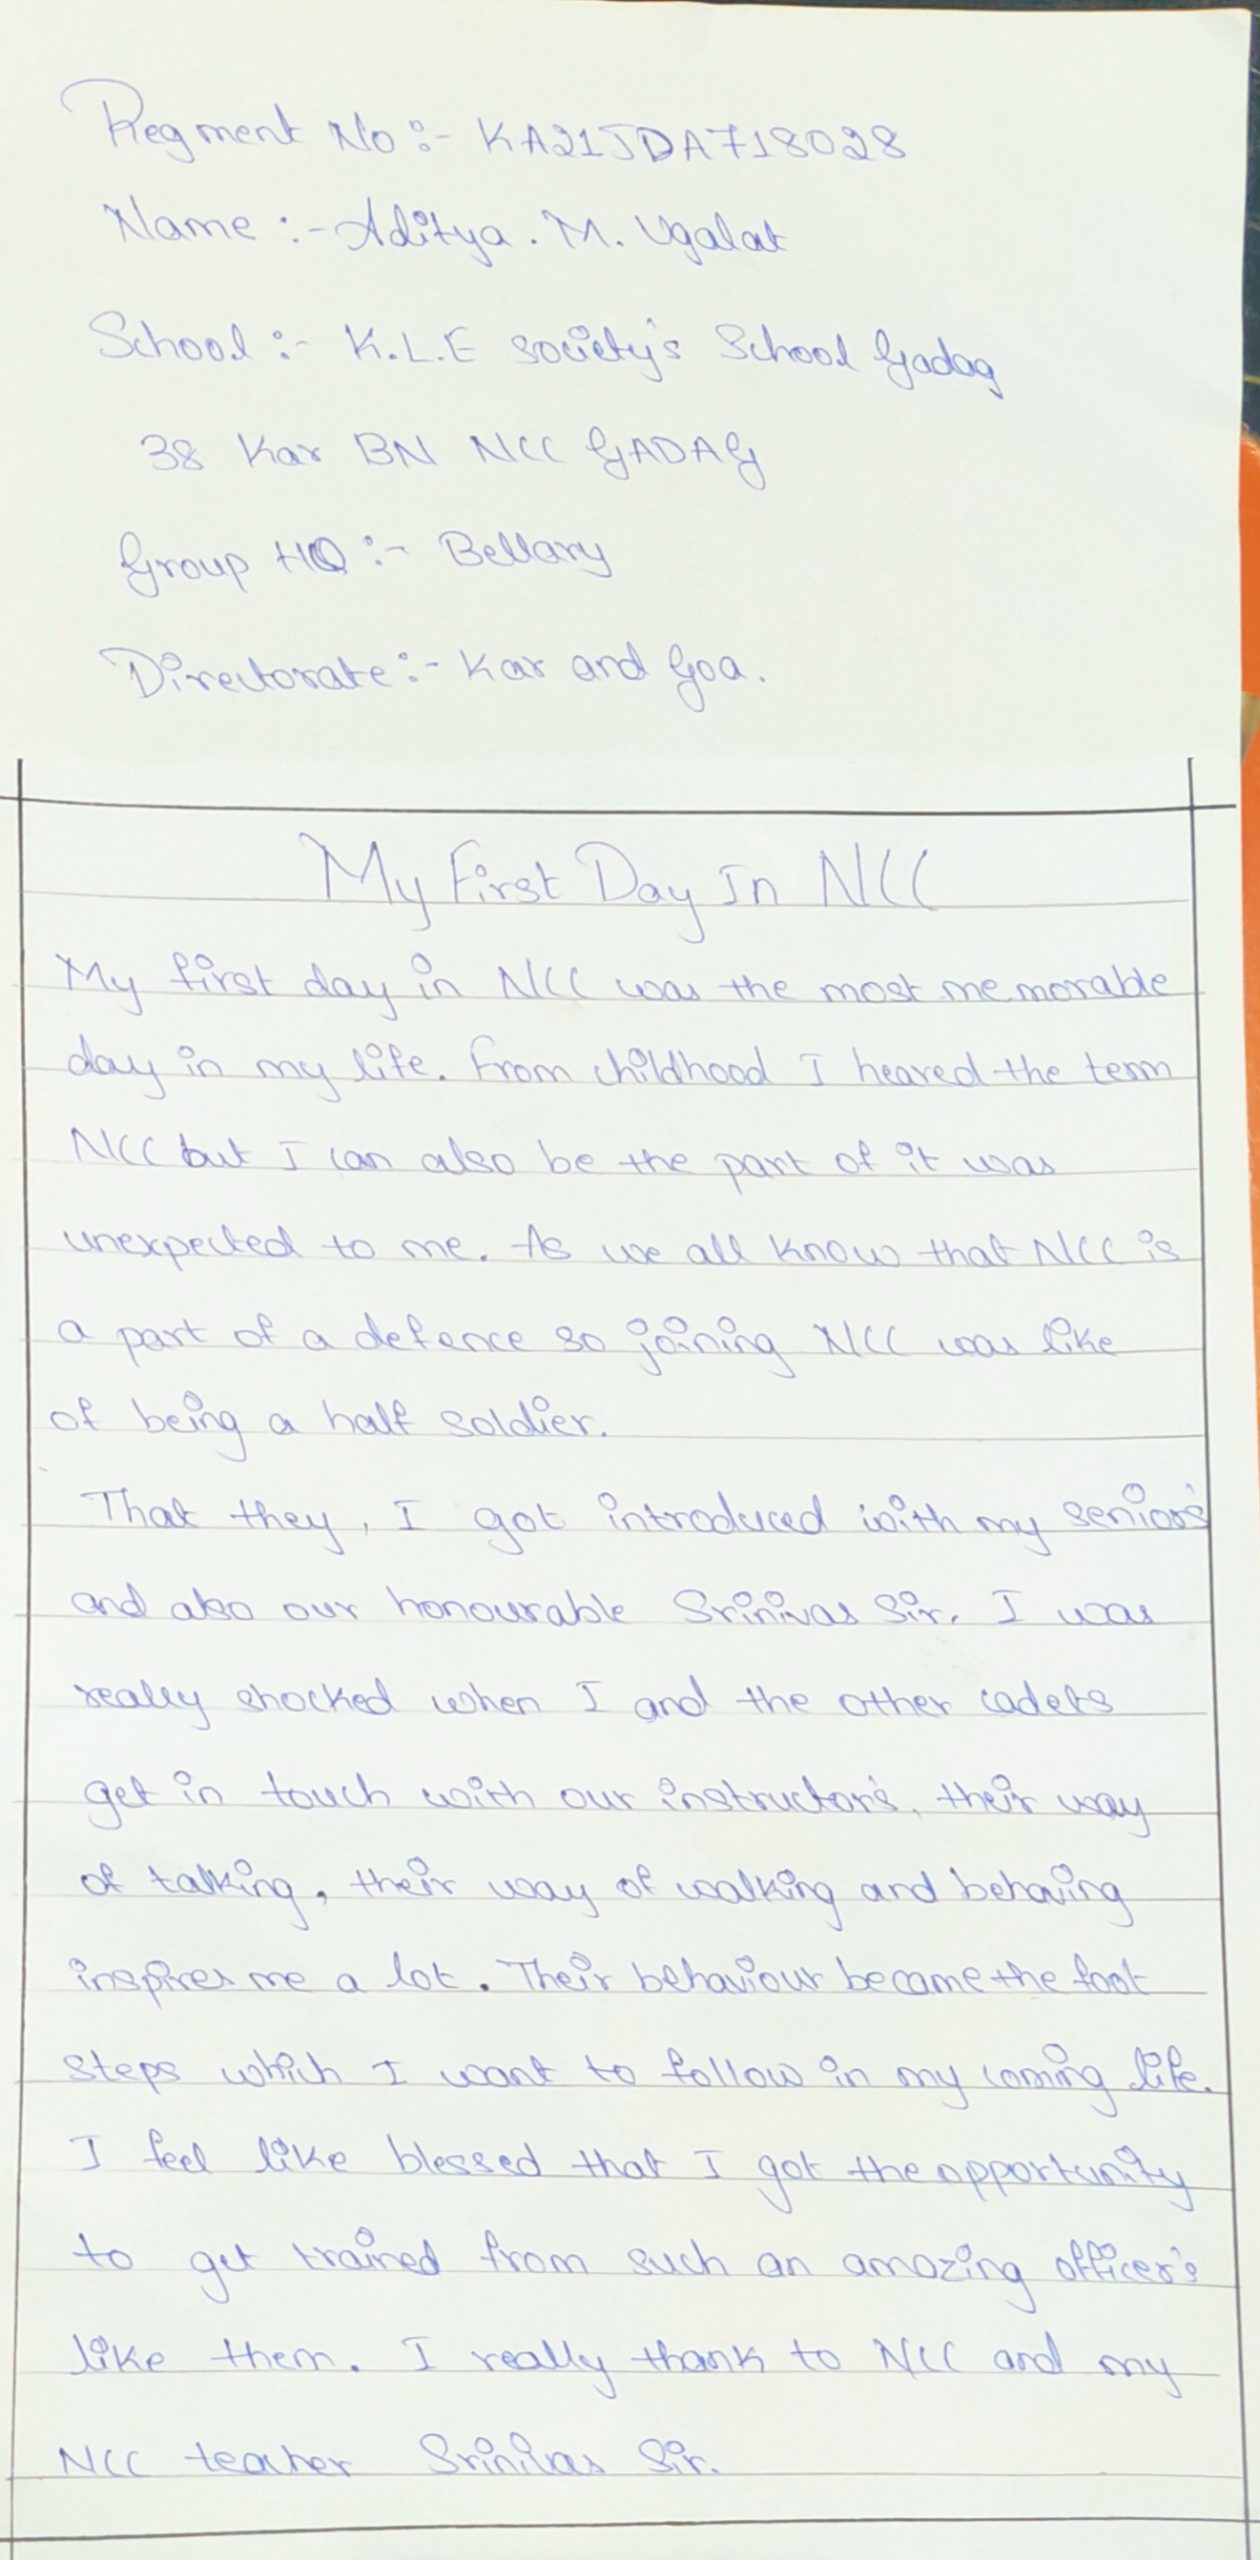 Regment No :- KA21JDA718028
Name :- Aditya . M. Ugalat
School :- K.L.E society's School Gadag
38 Kar BN NCC GADAG
Group HQ :- Bellary
Directorate :- Kar and Goa.
My First Day In NCC
My first day in NCC was the most memorable
day in my life. From childhood I heared the term
NCC but I can also be the part of it was
unexpected to me. As we all know that NCC is
a part of a defence so joining NCC was like
of being a half soldier.
That they, I got introduced with my senior's
and also our honourable Srinivas Sir. I was
really shocked when I and the other cadets
get in touch with our instructor's, their way
of talking, their way of walking and behaving
inspires me a lot. Their behaviour became the foot
steps which I want to follow in my coming life.
I feel like blessed that I got the opportunity
to get trained from such an amazing officer's
like them. I really thank to NCC and my
NCC teacher Srinivas Sir.